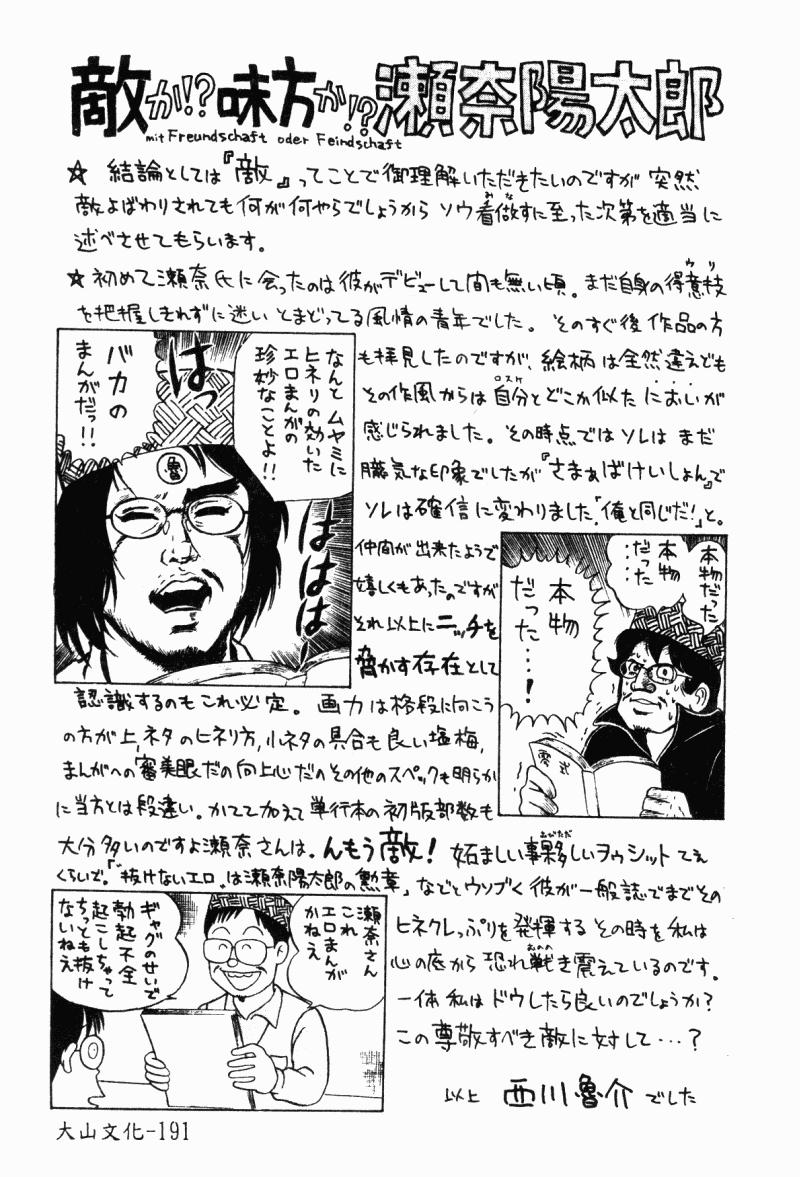 敵か!?味方か!?瀬奈陽太郎
mit Freundschaft oder Feindschaft
☆ 結論としては『敵』ってことで御理解いただきたいのですが 突然
敵よばわりされても何が何やらでしょうから ソウ看做すに至った次第を適当に
みな
述べさせてもらいます。
☆初めて瀬奈氏に会ったのは彼がデビューして間も無い頃。まだ自身の得意技
ウリ
を把握しきれずに迷い とまどってる風情の青年でした。 そのすぐ後 作品の方
も拝見したのですが、絵柄は全然違えども
その作風からは自分とどこか似たにおいが
ロスケ
感じられました。その時点ではソレはまだ
朧気な印象でしたが『さまぁばけいしょん』で
ソレは確信に変わりました「俺と同じだ!」と。
仲間が出来たようで
嬉しくもあったのですが
それ以上にニッチを
脅かす存在として
認識するのもこれ必定。 画力は格段に向こう
の方が上、ネタのヒネリ方、小ネタの具合も良い塩梅、
まんがへの審美眼だの向上心だのその他のスペックも明らか
に当方とは段違い。かてて加えて単行本の初版部数も
大分多いのですよ瀬奈さんは。んもう敵! 妬ましい事夥しいヲゥシットてえ
おびただ
くらいで。「"抜けないエロ"は瀬奈陽太郎の勲章」などとウソブく彼が一般誌でまでその
ヒネクレっぷりを発揮するその時を私は
心の底から恐れ戦き震えているのです。
おのの
一体私はドウしたら良いのでしょうか?
この尊敬すべき敵に対して…?
以上 西川魯介でした
なんとムヤミに
ヒネリの効いた
エロまんがの
珍妙なことよ!!
はっ
ははは
バカの
まんがだっ!!
魯
本物だった
本物
だった
……
本物
だった…!
零式
瀬奈さん
これ
エロまんが
かねえ
ギャグのせいで
勃起不全
起こしちゃって
ちっとも抜け
ないねえ
大山文化-191